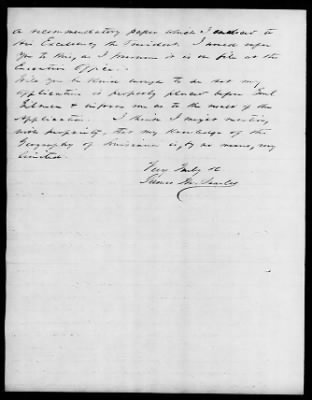 a recommendatory paper which I enclosed to
His Excellency the President. I would refer
you to this, as I presume it is on file at the
Executive Office.
Will you be kind enough to see that my
application is properly placed before
& inform me as to the result of the
Application. I think I might mention,
with propriety, that my knowledge of the
Geography of Louisiana is, by no means, very
limited.
Very Truly &c
James